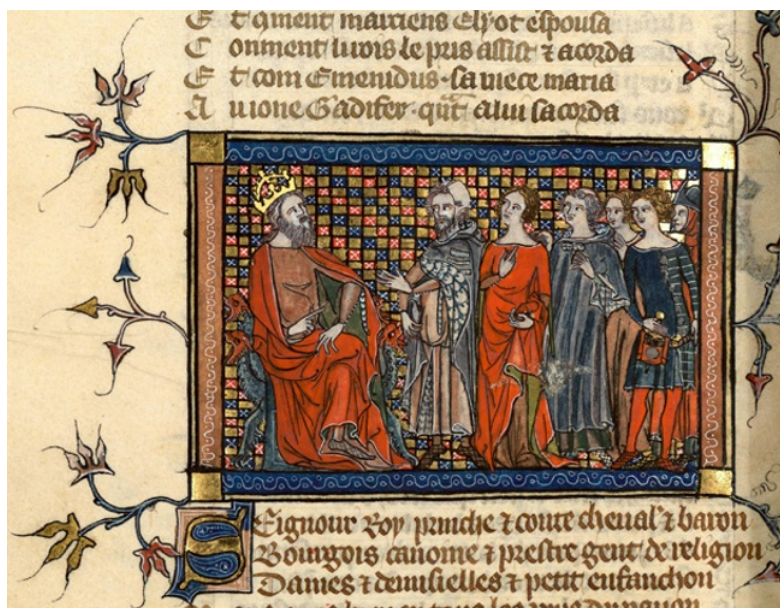 E t qment marciens Elyot espousa
C onment luvis le pris assist ⁊ acorda
E t com Emenidus sa niece maria
A uione Gadifer qnt a lui sacorda
Seignour Roy prinche ⁊ conte cheual ⁊ baron
Bourgois canonne ⁊ prestre gent de religion
Dames ⁊ demisielles ⁊ petit enfanchon